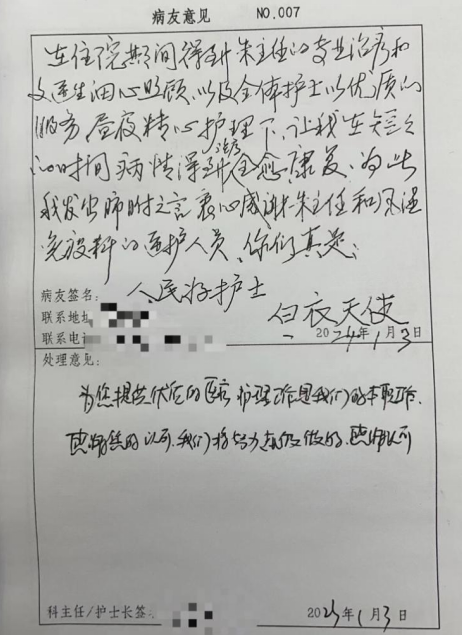 病友意见 NO.007
在住院期间得到朱主任的专业治疗和
文医生细心照顾,以及全体护士以优质的
服务,昼夜精心护理下,让我在短短
的时间病情得到治疗全愈康复,为此
我发出肺腑之言衷心感谢朱主任和风湿
免疫科的医护人员,你们真是:
病友签名: 人民好护士
联系地址 白衣天使
联系电话 2024年1月3日
处理意见:
为您提供优质的医疗护理工作是我们的本职工作,
感谢您的认可,我们将努力做的,感谢认可
科主任/护士长签: 2023年1月3日